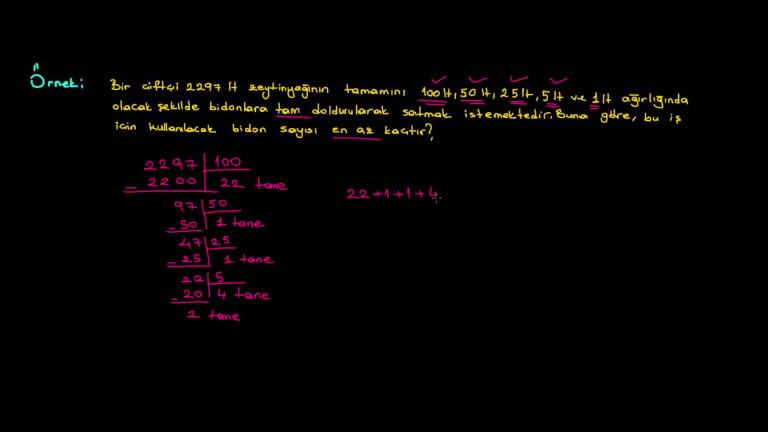 Örnek:
Bir çiftçi 2297 lt zeytinyağının tamamını 100 lt, 50 lt, 25 lt, 5 lt ve 1 lt ağırlığında
olacak şekilde bidonlara tam doldurularak satmak istemektedir. Buna göre, bu iş
için kullanılacak bidon sayısı en az kaçtır?
2297 | 100
- 2200 | 22 tane
97 | 50
- 50 | 1 tane
47 | 25
- 25 | 1 tane
22 | 5
- 20 | 4 tane
2 tane
22+1+1+4